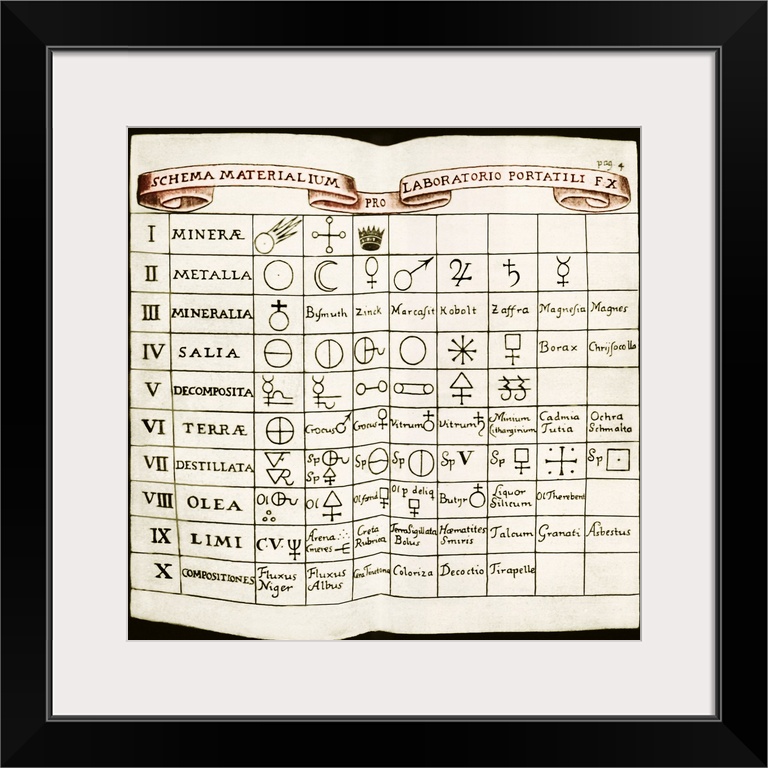 pag. 4
SCHEMA MATERIALIUM PRO LABORATORIO PORTATILI FX
I MINERÆ
II METALLA
III MINERALIA Bysmuth Zinck Marcasit Kobolt Zaffra Magnesia Magnes
IV SALIA Borax Chrijsocolla
V DECOMPOSITA
VI TERRÆ Crocus Crocus Vitrum Vitrum Minium Cadmia Ochra
Litharginium Tutia Schmalta
VII DESTILLATA Sp Sp Sp Sp V Sp Sp
Sp
VIII OLEA Ol Ol Ol p deliq Butyr Liquor Ol Therebent
Silicum
IX LIMI C.V. Arena Creta Terra Sigillata Hæmatites Talcum Granati Asbestus
Cineres Rubrica Bolus Smiris
X COMPOSITIONES Fluxus Fluxus Coloriza Decoctio Tirapelle
Niger Albus